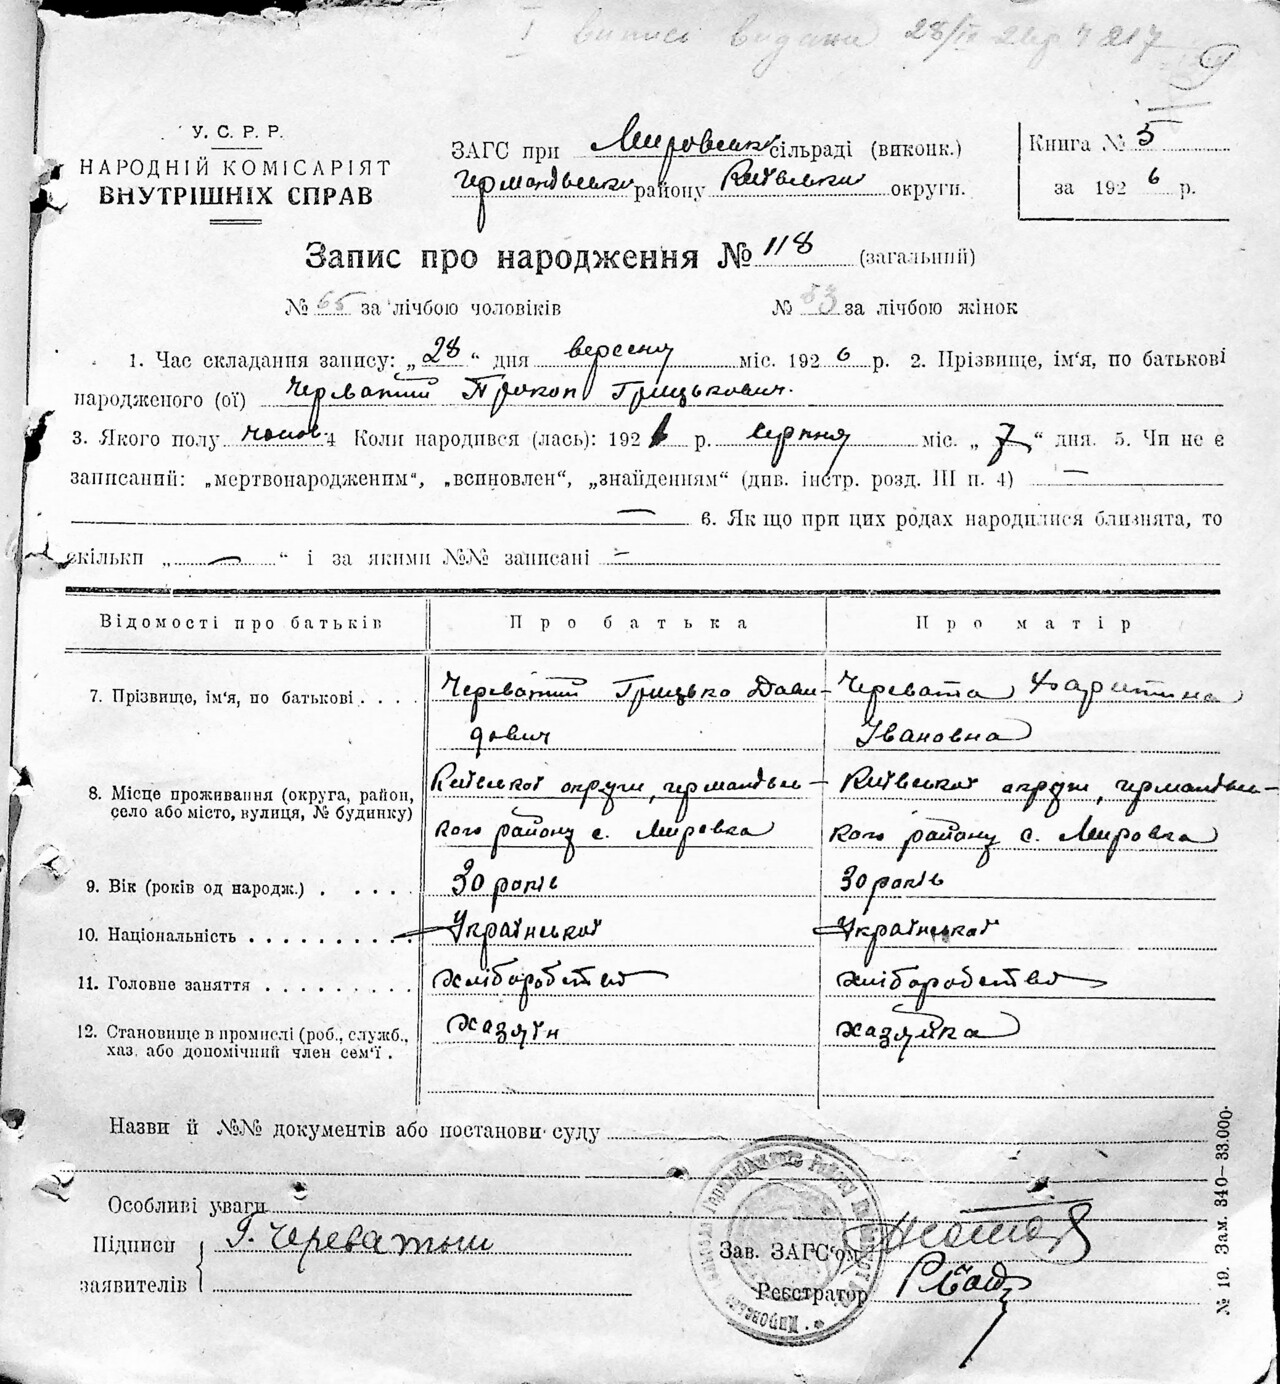 I виписі видани 28/IV
9
У. С. Р. Р.
НАРОДНІЙ КОМІСАРІЯТ
ВНУТРІШНІХ СПРАВ
ЗАГС при Мировської сільраді (виконк.)
району Київської округи.
Книга № 5
за 1926 р.
Запис про народження № 118 (загальний)
№ 65 за лічбою чоловіків № 53 за лічбою жінок
1. Час складання запису: „28“ дня вересня міс. 1926 р. 2. Прізвище, ім'я, по батькові
народженого (ої) Черватий Прокоп Грицькович.
3. Якого полу чолов. 4 Коли народився (лась): 1926 р. серпня міс. „7“ дня. 5. Чи не є
записаний: „мертвонародженим“, „всиновлен“, „знайденням“ (див. інстр. розд. III п. 4) —
— 6. Як що при цих родах народилися близнята, то
скільки „—“ і за якими №№ записані —
Відомості про батьків Про батька Про матір
7. Прізвище, ім'я, по батькові . . . . Череватий Грицько Дави- Черевата Харитина
дович Івановна
8. Місце проживання (округа, район, Київської округи, Київської округи,
село або місто, вулиця, № будинку) кого району с. Мировка кого району с. Мировка
9. Вік (років од народж.) . . . . . 30 років 30 років
10. Національність . . . . . . . . . . Української Української
11. Головне заняття . . . . . . . . . хліборобство хліборобство
12. Становище в промислі (роб., служб., хазяїн хазяйка
хаз. або допомічний член сем'ї .
Назви й №№ документів або постанови суду
Особливі уваги
Підписи Г. Череватый
заявителів
Зав. ЗАГС'ом
Реєстратор
№ 19. Зам. 340—33.000.